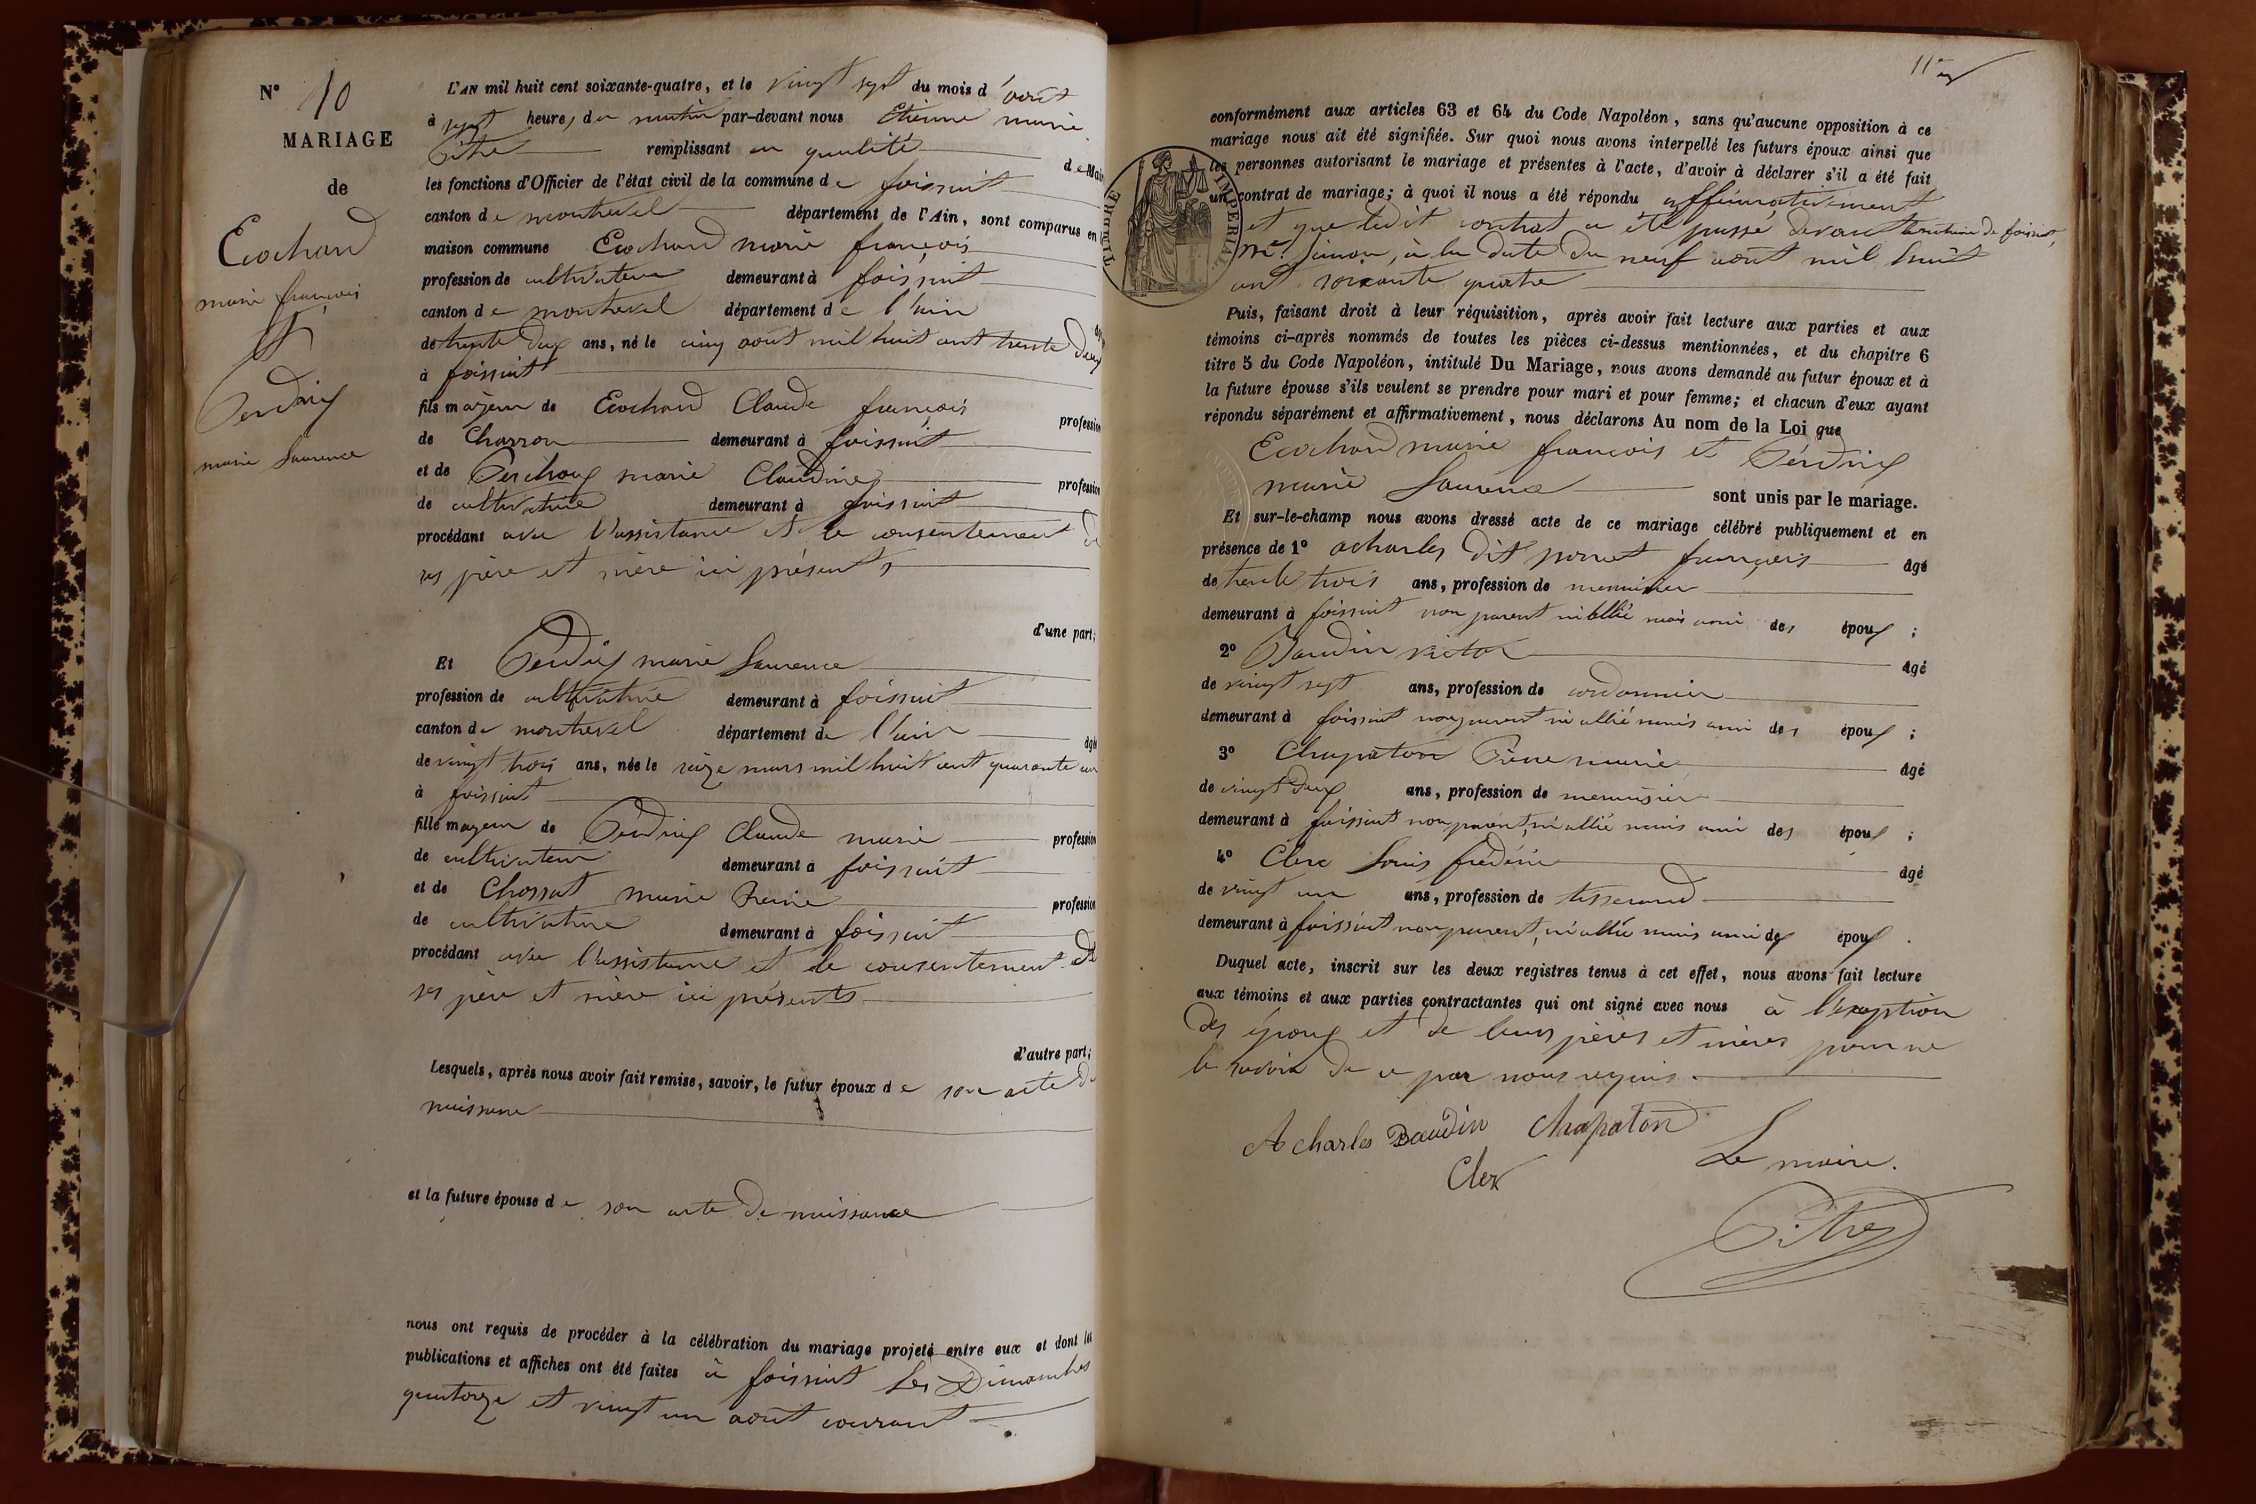 N° 10
MARIAGE
de
Ecochard
marie françois
et
Perdrix
marie Laurence
L'AN mil huit cent soixante-quatre, et le vingt sept du mois d'août
à sept heures du matin par-devant nous Etienne marie
Pitre remplissant en qualité de Maire
les fonctions d'Officier de l'état civil de la commune de foissiat
canton de montrevel département de l'Ain, sont comparus en
maison commune Ecochard marie françois
profession de cultivateur demeurant à foissiat
canton de montrevel département de l'ain
de trente deux ans, né le cinq août mil huit cent trente deux
à foissiat
fils majeur de Ecochard Claude françois profession
de Charron demeurant à foissiat
et de marie Claudine profession
de cultivatrice demeurant à foissiat
procédant avec l'assistance et le consentement de
ses père et mère ici présents
d'une part;
Et Perdrix marie Laurence
profession de cultivatrice demeurant à foissiat
canton de montrevel département de l'ain âgée
de vingt trois ans, née le seize mars mil huit cent quarante un
à foissiat
fille majeure de Perdrix Claude marie profession
de cultivateur demeurant à foissiat
et de Chossat marie Reine profession
de cultivatrice demeurant à foissiat
procédant avec l'assistance et le consentement de
ses père et mère ici présents
d'autre part;
Lesquels, après nous avoir fait remise, savoir, le futur époux de son acte de
naissance
et la future épouse de son acte de naissance
nous ont requis de procéder à la célébration du mariage projeté entre eux et dont les
publications et affiches ont été faites à foissiat les Dimanches
quatorze et vingt un août courant
11
conformément aux articles 63 et 64 du Code Napoléon, sans qu'aucune opposition à ce
mariage nous ait été signifiée. Sur quoi nous avons interpellé les futurs époux ainsi que
les personnes autorisant le mariage et présentes à l'acte, d'avoir à déclarer s'il a été fait
un contrat de mariage; à quoi il nous a été répondu affirmativement
et que ledit contrat a été passé devant
me. à la date du neuf août mil huit
cent soixante quatre
TIMBRE IMPERIAL
Puis, faisant droit à leur réquisition, après avoir fait lecture aux parties et aux
témoins ci-après nommés de toutes les pièces ci-dessus mentionnées, et du chapitre 6
titre 5 du Code Napoléon, intitulé Du Mariage, nous avons demandé au futur époux et à
la future épouse s'ils veulent se prendre pour mari et pour femme; et chacun d'eux ayant
répondu séparément et affirmativement, nous déclarons Au nom de la Loi que
Ecochard marie françois et Perdrix
marie Laurence sont unis par le mariage.
Et sur-le-champ nous avons dressé acte de ce mariage célébré publiquement et en
présence de 1° acharles dit françois âgé
de trente trois ans, profession de menuisier
demeurant à foissiat non parent ni allié mais ami des époux;
2° Baudin victor âgé
de vingt sept ans, profession de cordonnier
demeurant à foissiat non parent ni allié mais ami des époux;
3° Chapaton Pierre marie âgé
de vingt deux ans, profession de menuisier
demeurant à foissiat non parent, ni allié mais ami des époux;
4° Clerc Louis frédéric âgé
de vingt un ans, profession de tisserand
demeurant à foissiat non parent, ni allié mais ami des époux.
Duquel acte, inscrit sur les deux registres tenus à cet effet, nous avons fait lecture
aux témoins et aux parties contractantes qui ont signé avec nous à l'exeption
des époux et de leurs pères et mères pour ne
le savoir de ce par nous requis.
Acharles Baudin Chapaton
Clerc
Le maire.
Pitre